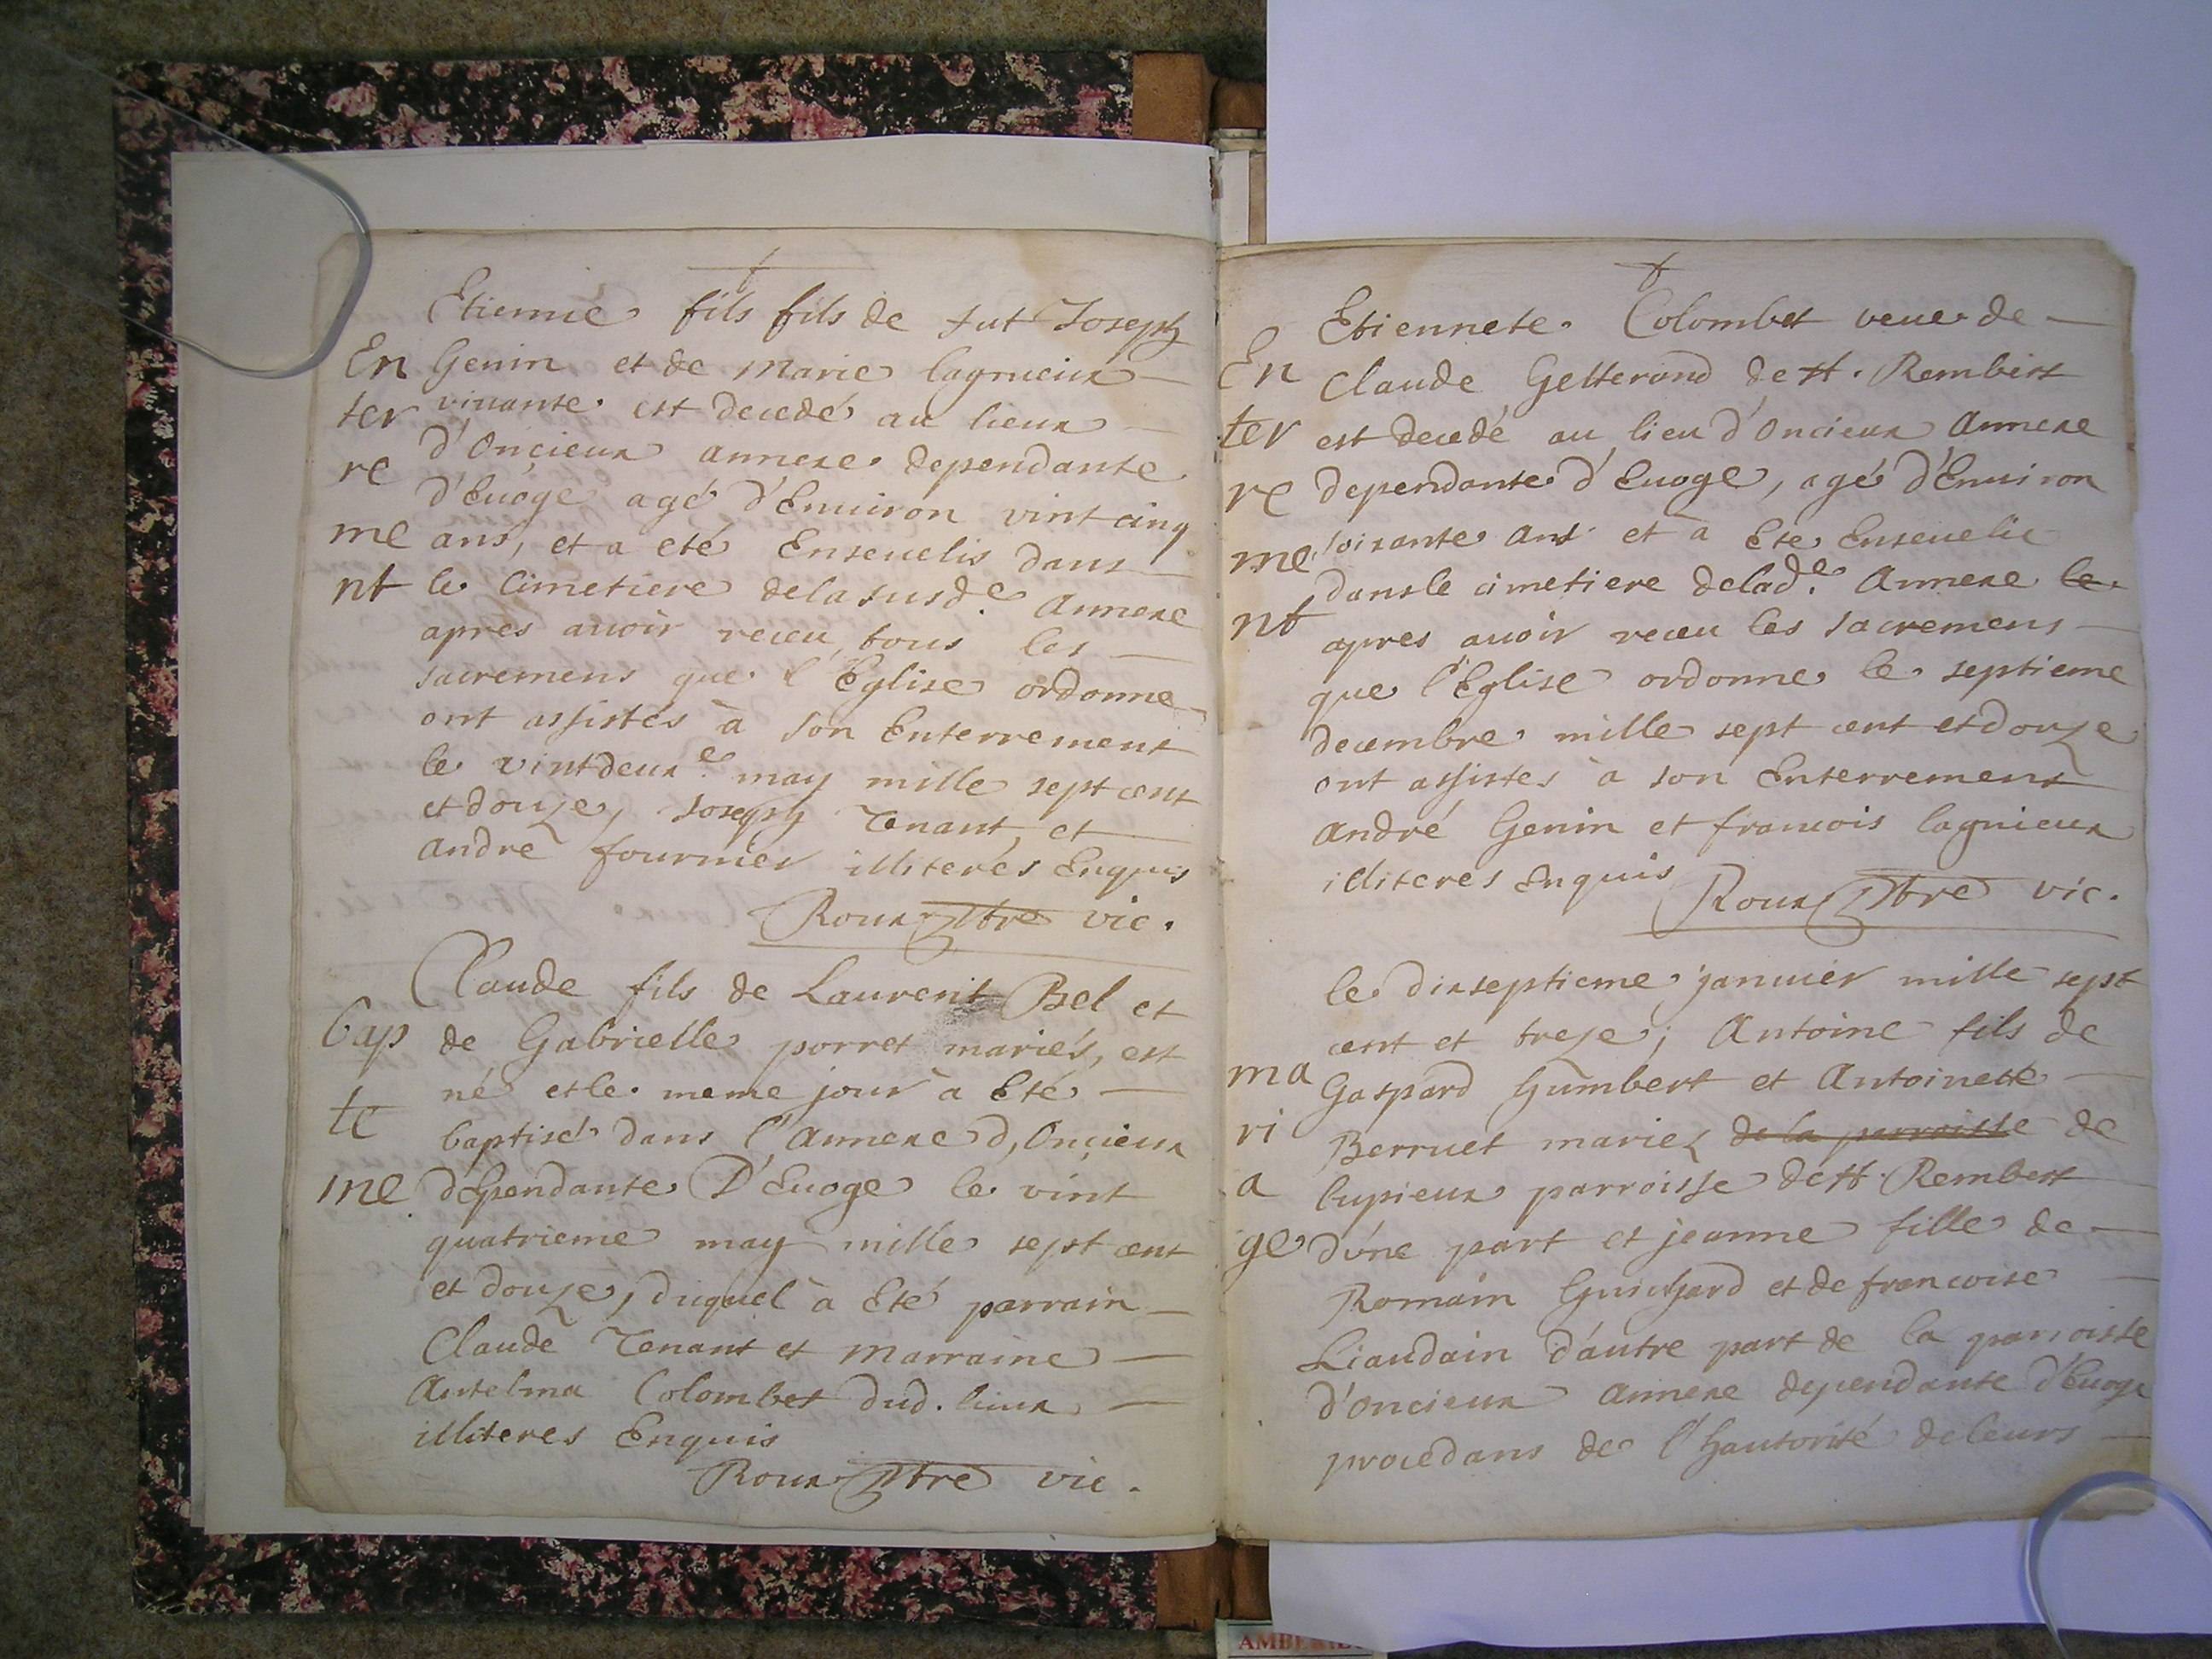 Etienne fils fils de fut Joseph
En Genin et de Marie Lagnieux
ter viuante est decedé au lieux
re d'Oncieux annexe dependante
d'Euoge agé d'Enuiron vint cinq
me ans, et a eté Enseuelis dans
nt le Cimetiere dela susde. Annexe
apres auoir receu tous les
sacremens que l'Eglise ordonne
ont assistés à son Enterrement
le vintdeuxe. may mille sept cent
et douze, Joseph Tenant et
andré fournier illiterés Enquis
Roux ptre vic.
Claude fils de Laurent Bel et
Bap de Gabrielle porret mariés, est
né et le meme jour à Eté
te baptisé dans l'Annexe d,Oncieux
me dependante D'Euoge le vint
quatrieme may mille sept cent
et douze, duquel à Eté parrain
Claude Tenant et Marraine
Antelma Colombet dud. lieux
illiteres Enquis
Roux ptre vic.
Etiennete Colombet veue de
En Claude Getterand de st. Rembert
ter est decedé au lieu d'Oncieux Annexe
re dependante d'Euoge, agé d'Enuiron
me soixante ans et à Ete Enseuelie
dans le cimetiere delade. Annexe le
nt apres auoir receu les sacremens
que l'Eglise ordonne le septieme
decembre mille sept cent et douze
ont assistes à son Enterrement
André Genin et francois lagnieux
illiteres Enquis Roux ptre vic.
le dixseptieme januier mille sept
cent et treze; Antoine fils de
ma Gaspard Humbert et Antoinette
ri Berruet mariez de la parroisse de
a lupieux parroisse de st. Rembert
ge d'une part et jeanne fille de
Romain Guichard et de francoise
Liaudain d'autre part de la parroisse
d'oncieux annexe dependante d'Euoge
procedans de l'hautorité de leurs
AMBER